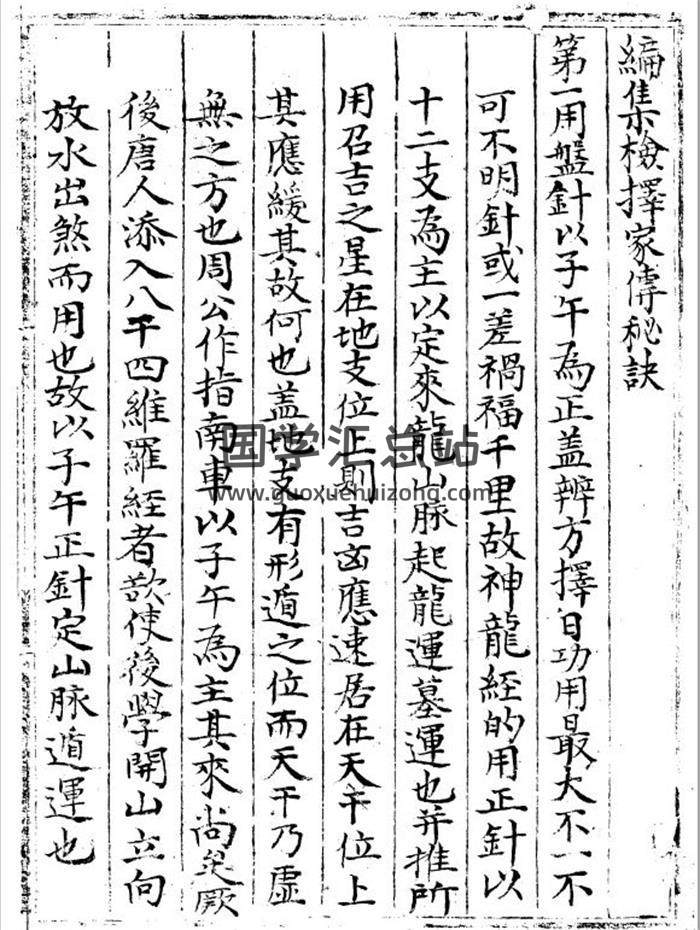 編集檢擇家傳秘訣
第一用盤針以子午為正盖辨方擇日功用最大不一不
可不明針或一差禍福千里故神龍經的用正針以
十二支為主以定來龍山脉起龍運墓運也并推所
用召吉之星在地支位上則吉凶應速居在天干位上
其應緩其故何也盖地支有形遁之位而天干乃虛
無之方也周公作指南車以子午為主其來尚矣厥
後唐人添入八干四維羅経者欲使後學開山立向
放水出煞而用也故以子午正針定山脉遁運也
国学汇总站
www.guoxuehuizong.com